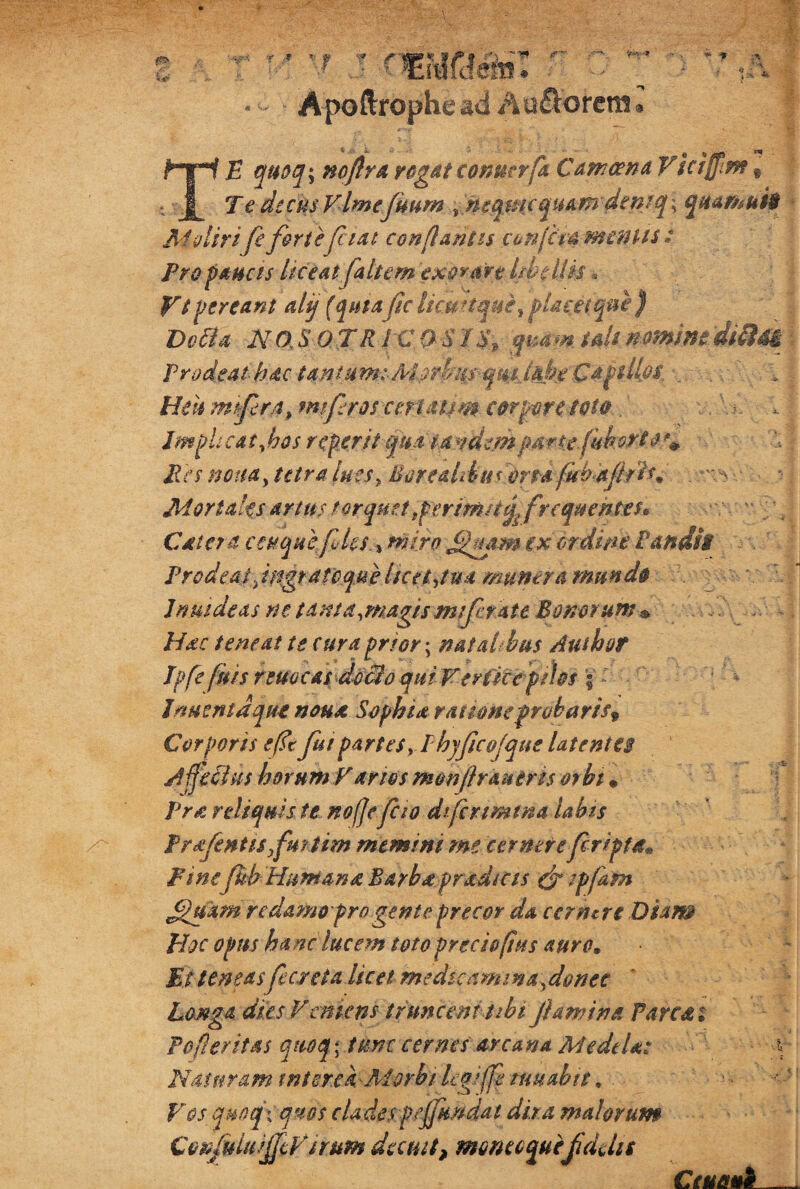 Eiusdem.
Apostrophe ad Auctorem.
TE quoq; nostra rogat conuersa Camœna Vicissim,
Te decus Vlme suum, nequicquam demiq; quamuis
Moliri se forte sciat constantis conscia mentis:
Pro paucis liceat saltem exorare libellis.
Vt pereant alij (quia sic licuitquè, placetquè)
Docta NOSOTRICOSIS, quam tali nomine dictas
Prodeat hæc tantum: Morbus qui labe Capillos
Heu misera, miseros certatim corpore toto
Implicat, hos reperit qua tandem parte subortus,
Res noua, tetra lues, Borealibus orta sub astris.
Mortales artus torquet, perimitq; frequentes.
Cætera ceuquè soles, miro Quam ex ordine Pandis
Prodeat, ingratoquè licet, tua munera mundo
Inuideas ne tanta, magis miserate Bonorum.
Hæc teneat te cura prior; natalibus Author
Ipse suis reuocas docto qui Vertice pilos;
Inuentáque nouæ Sophiæ ratione probaris,
Corporis esse sui partes, Physicosque latentes
Affectus horum Varios monstraueris orbi.
Præ reliquis te nosse scio discrimina labis
Præsentis, furtim memini me cernere scripta.
Fine sub Humanæ Barbæ prædicis & ipsam
Quam redamo pro gente precor da cernere Diam
Hoc opus hanc lucem toto preciosius auro.
Et teneas secreta licet medicamina, donec
Longa dies Veniens truncent tibi stamina Parcæ:
Posteritas quoq; tunc cernes arcana Medelæ:
Naturam interea Morbi legisse iuuabit.
Vos quoq; quos clades pessundat dira malorum
Consuluisse Virum decuit, moneoquè fidelis
Ceuquè